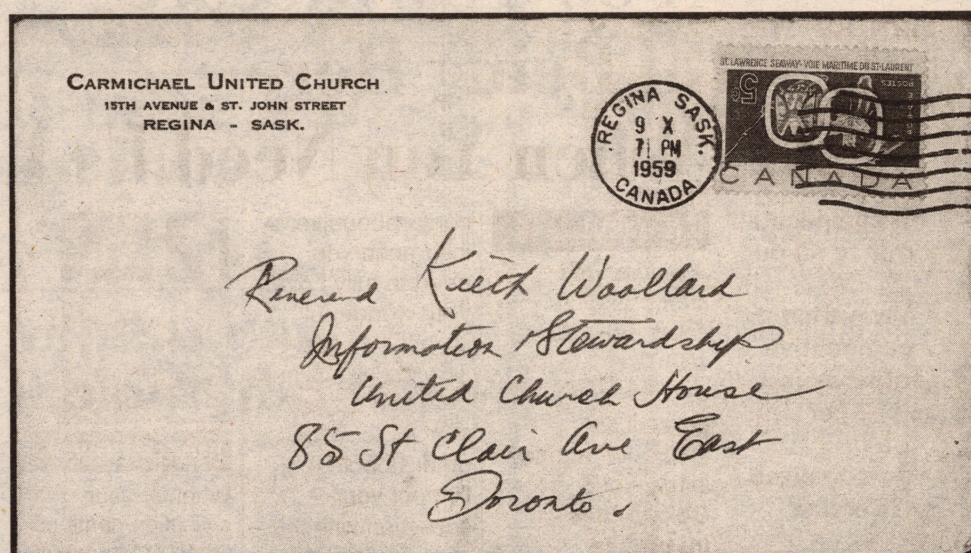 CARMICHAEL UNITED CHURCH
15TH AVENUE & ST. JOHN STREET
REGINA - SASK.
REGINA SASK.
9 X
PM
1959
CANADA
ST. LAWRENCE SEAWAY-VOIE MARITIME DU ST-LAURENT
5c
CANADA
Reverend Kieth Woollard
Information Stewardship
United Church House
85 St Clair Ave East
Toronto.